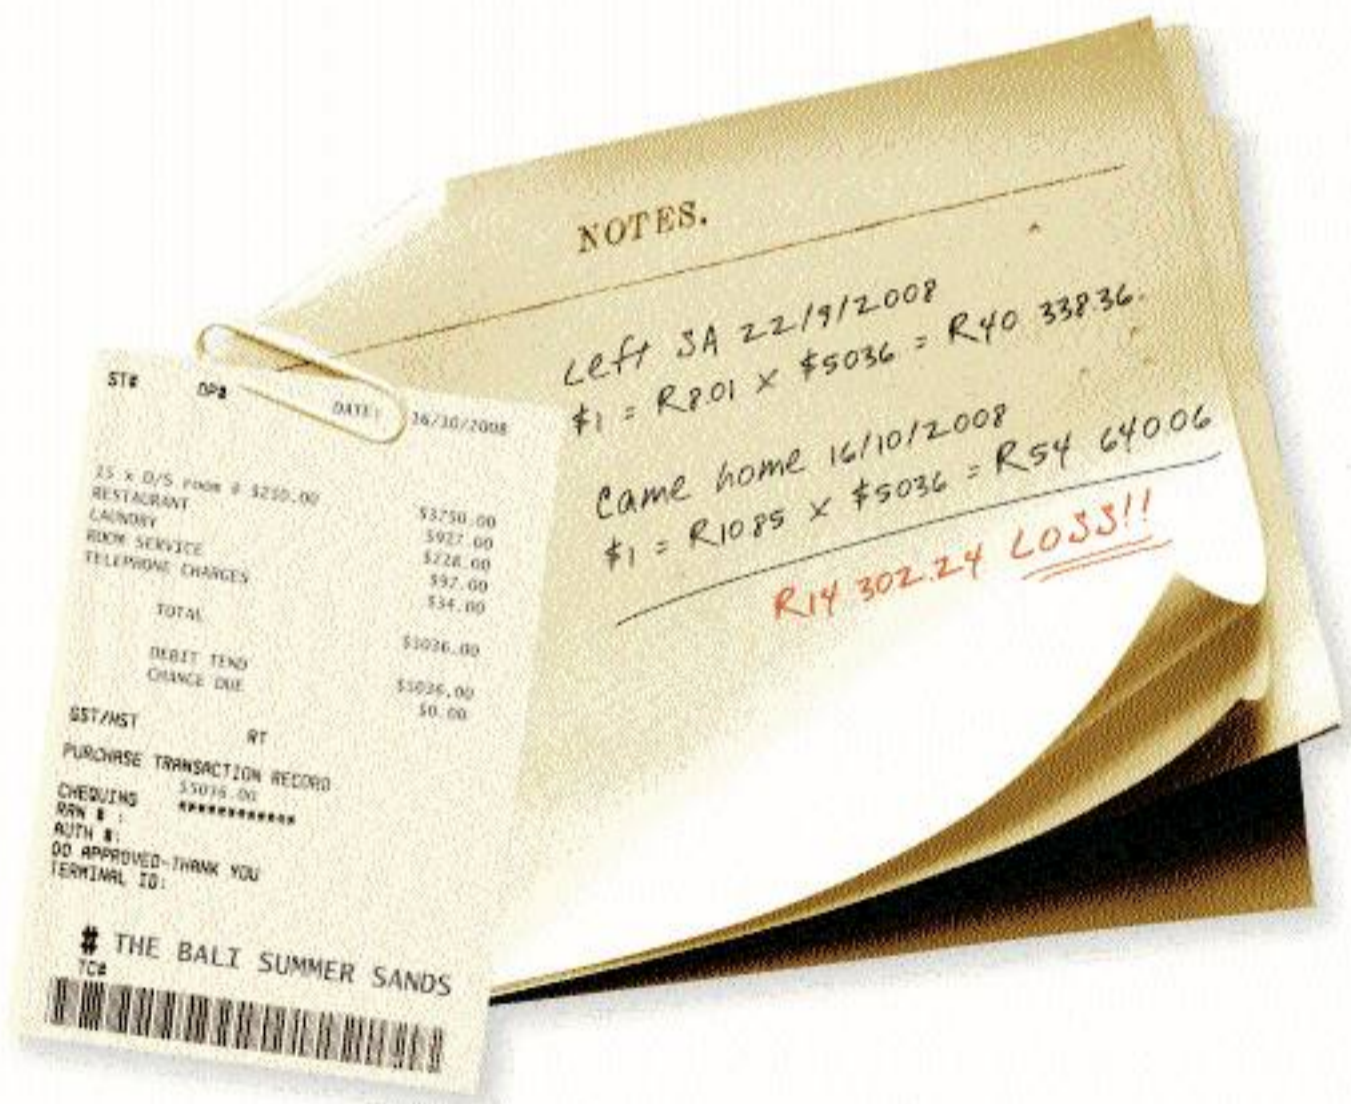 NOTES.
Left SA 22/9/2008
$1 = R8.01 x $5036 = R40 338.36.
Came home 16/10/2008
$1 = R10.85 x $5036 = R54 640.06
R14 302.24 LOSS!!
ST# OP# DATE: 16/10/2008
15 x D/S room @ $250.00 $3750.00
RESTAURANT $927.00
LAUNDRY $228.00
ROOM SERVICE $97.00
TELEPHONE CHARGES $34.00
TOTAL $5036.00
DEBIT TEND $5036.00
CHANGE DUE $0.00
GST/HST RT
PURCHASE TRANSACTION RECORD
$5036.00
CHEQUING ************
RRN # :
AUTH #:
00 APPROVED-THANK YOU
TERMINAL ID:
# THE BALI SUMMER SANDS
TC#